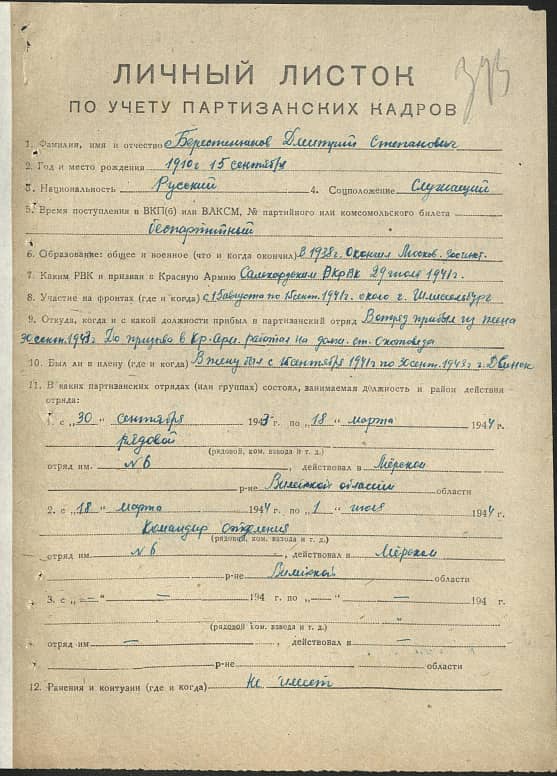 393
ЛИЧНЫЙ ЛИСТОК
ПО УЧЕТУ ПАРТИЗАНСКИХ КАДРОВ
1. Фамилия, имя и отчество Дмитрий Степанович
2. Год и место рождения 1910 г 15 сентября
3. Национальность Русский 4. Соцположение Служащий
5. Время поступления в ВКП(б) или ВЛКСМ, № партийного или комсомольского билета
беспартийный
6. Образование: общее и военное (что и когда окончил) в 1938 г. Окончил Москов.
7. Каким РВК и призван в Красную Армию Салехардским 29 июля 1941 г.
8. Участие на фронтах (где и когда) с 1 августа по 15 сент. 1941 г. около г. Шлиссельбург
9. Откуда, когда и с какой должности прибыл в партизанский отряд В отряд прибыл из плена
30 сент. 1943 г. До призыва в Кр. Арм. работал на
10. Был ли в плену (где и когда) В плену был с 15 сентября 1941 г по 30 сент. 1943 г. г. Двинск
11. В каких партизанских отрядах (или группах) состоял, занимаемая должность и район действия
отряда:
1. с „30" сентября 1943 г. по „18" марта 1944 г.
рядовой
(рядовой, ком. взвода и т. д.)
отряд им. № 6, действовал в Мёрском
р-не Вилейской области области
2. с „18" марта 1944 г. по „1" июля 1944 г.
Командир отделения
(рядовой, ком. взвода и т. д.)
отряд им. № 6, действовал в Мёрском
р-не Вилейской области
3. с „—" — 194 г. по „—" — 194 г.
(рядовой, ком. взвода и т. д.)
отряд им. —, действовал в —
р-не области
12. Ранения и контузии (где и когда) Не имеет